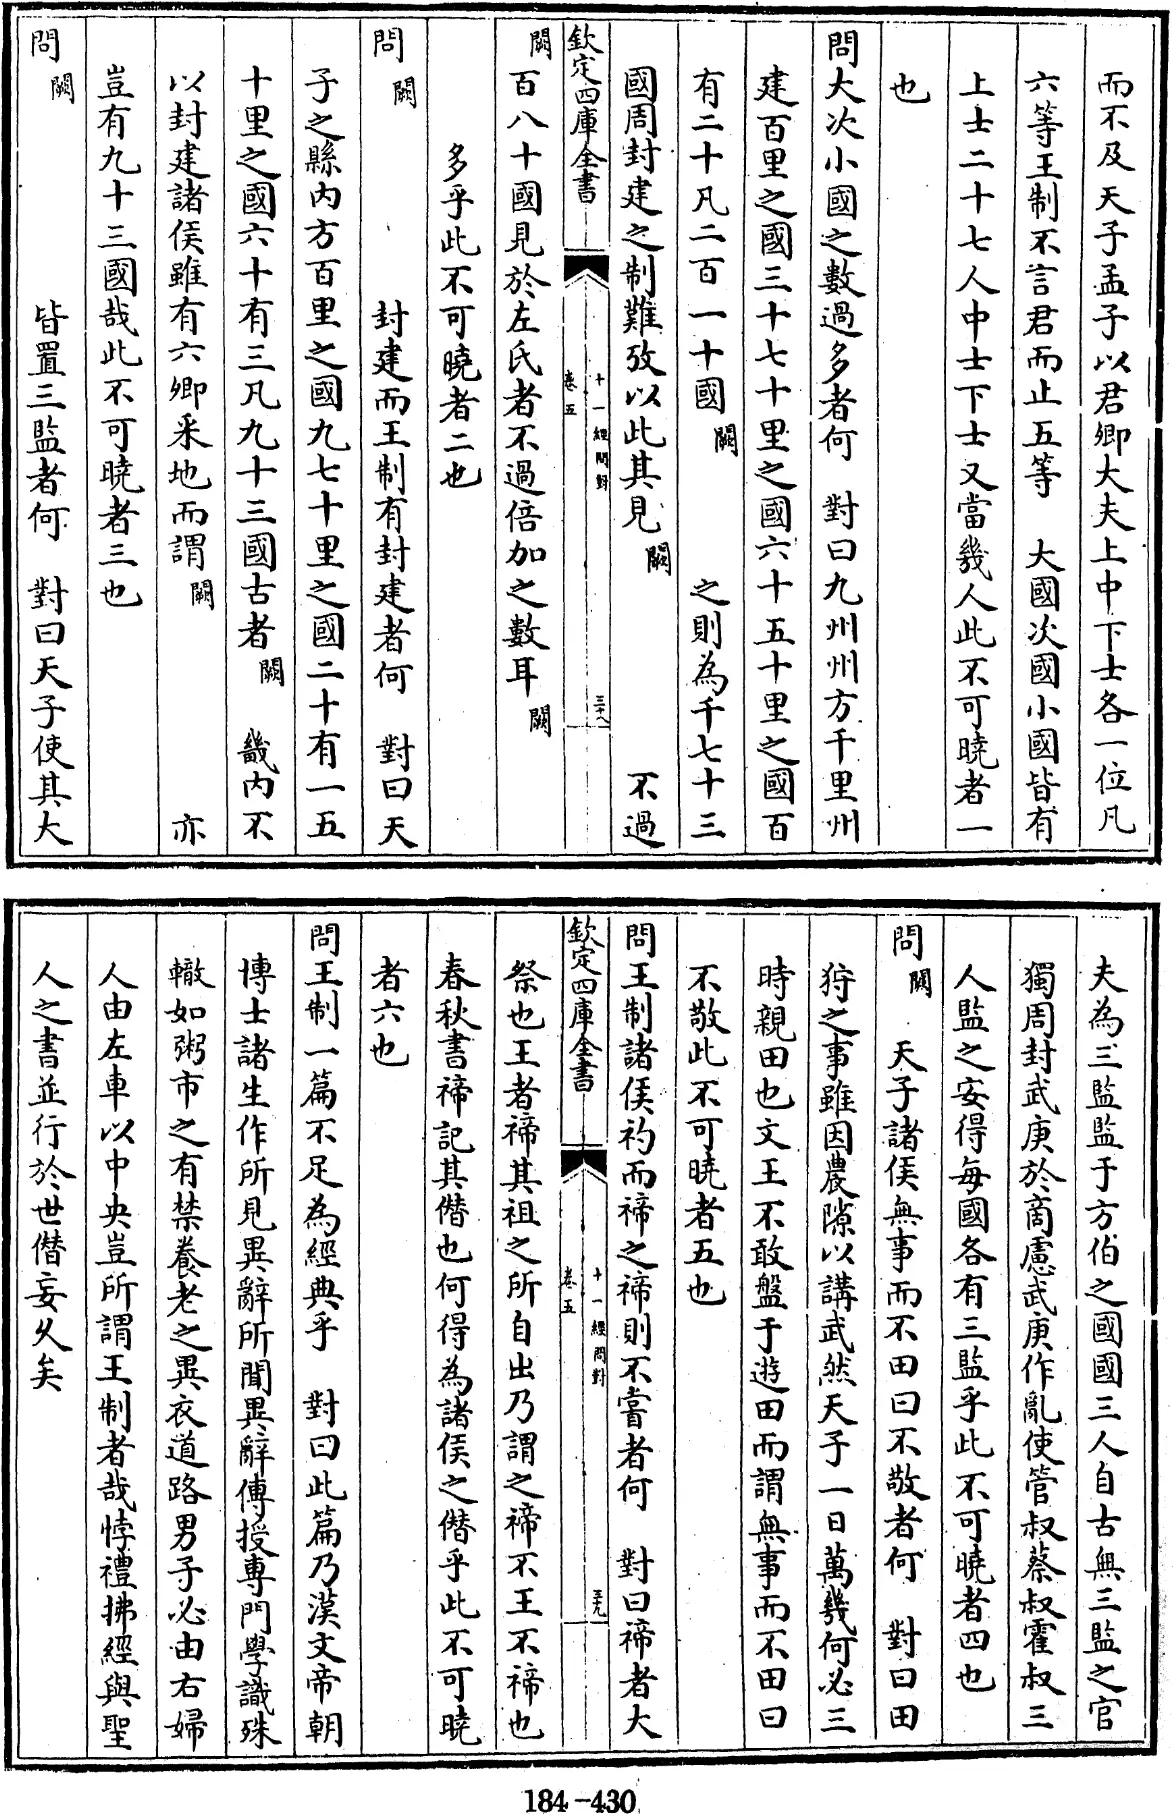 而不及天子孟子以君卿大夫上中下士各一位凡
六等王制不言君而止五等　大國次國小國皆有
上士二十七人中士下士又當幾人此不可曉者一
也
問大次小國之數過多者何　對曰九州州方千里州
建百里之國三十七十里之國六十五十里之國百
有二十凡二百一十國闕　之則為千七十三
國周封建之制難攷以此其見闕　不過
欽定四庫全書
十一經問對
卷五
三十八
闕百八十國見於左氏者不過倍加之數耳闕
多乎此不可曉者二也
問闕　封建而王制有封建者何　對曰天
子之縣內方百里之國九七十里之國二十有一五
十里之國六十有三凡九十三國古者闕　畿內不
以封建諸侯雖有六卿采地而謂闕　亦
豈有九十三國哉此不可曉者三也
問闕　皆置三監者何　對曰天子使其大
夫為三監監于方伯之國國三人自古無三監之官
獨周封武庚於商慮武庚作亂使管叔蔡叔霍叔三
人監之安得每國各有三監乎此不可曉者四也
問闕　天子諸侯無事而不田曰不敬者何　對曰田
狩之事雖因農隙以講武然天子一日萬幾何必三
時親田也文王不敢盤于遊田而謂無事而不田曰
不敬此不可曉者五也
問王制諸侯礿而禘之禘則不嘗者何　對曰禘者大
欽定四庫全書
十一經問對
卷五
三十九
祭也王者禘其祖之所自出乃謂之禘不王不禘也
春秋書禘記其僭也何得為諸侯之僭乎此不可曉
者六也
問王制一篇不足為經典乎　對曰此篇乃漢文帝朝
博士諸生作所見異辭所聞異辭傳授專門學識殊
轍如粥市之有禁養老之異衣道路男子必由右婦
人由左車以中央豈所謂王制者哉悖禮拂經與聖
人之書並行於世僭妄久矣
184-430